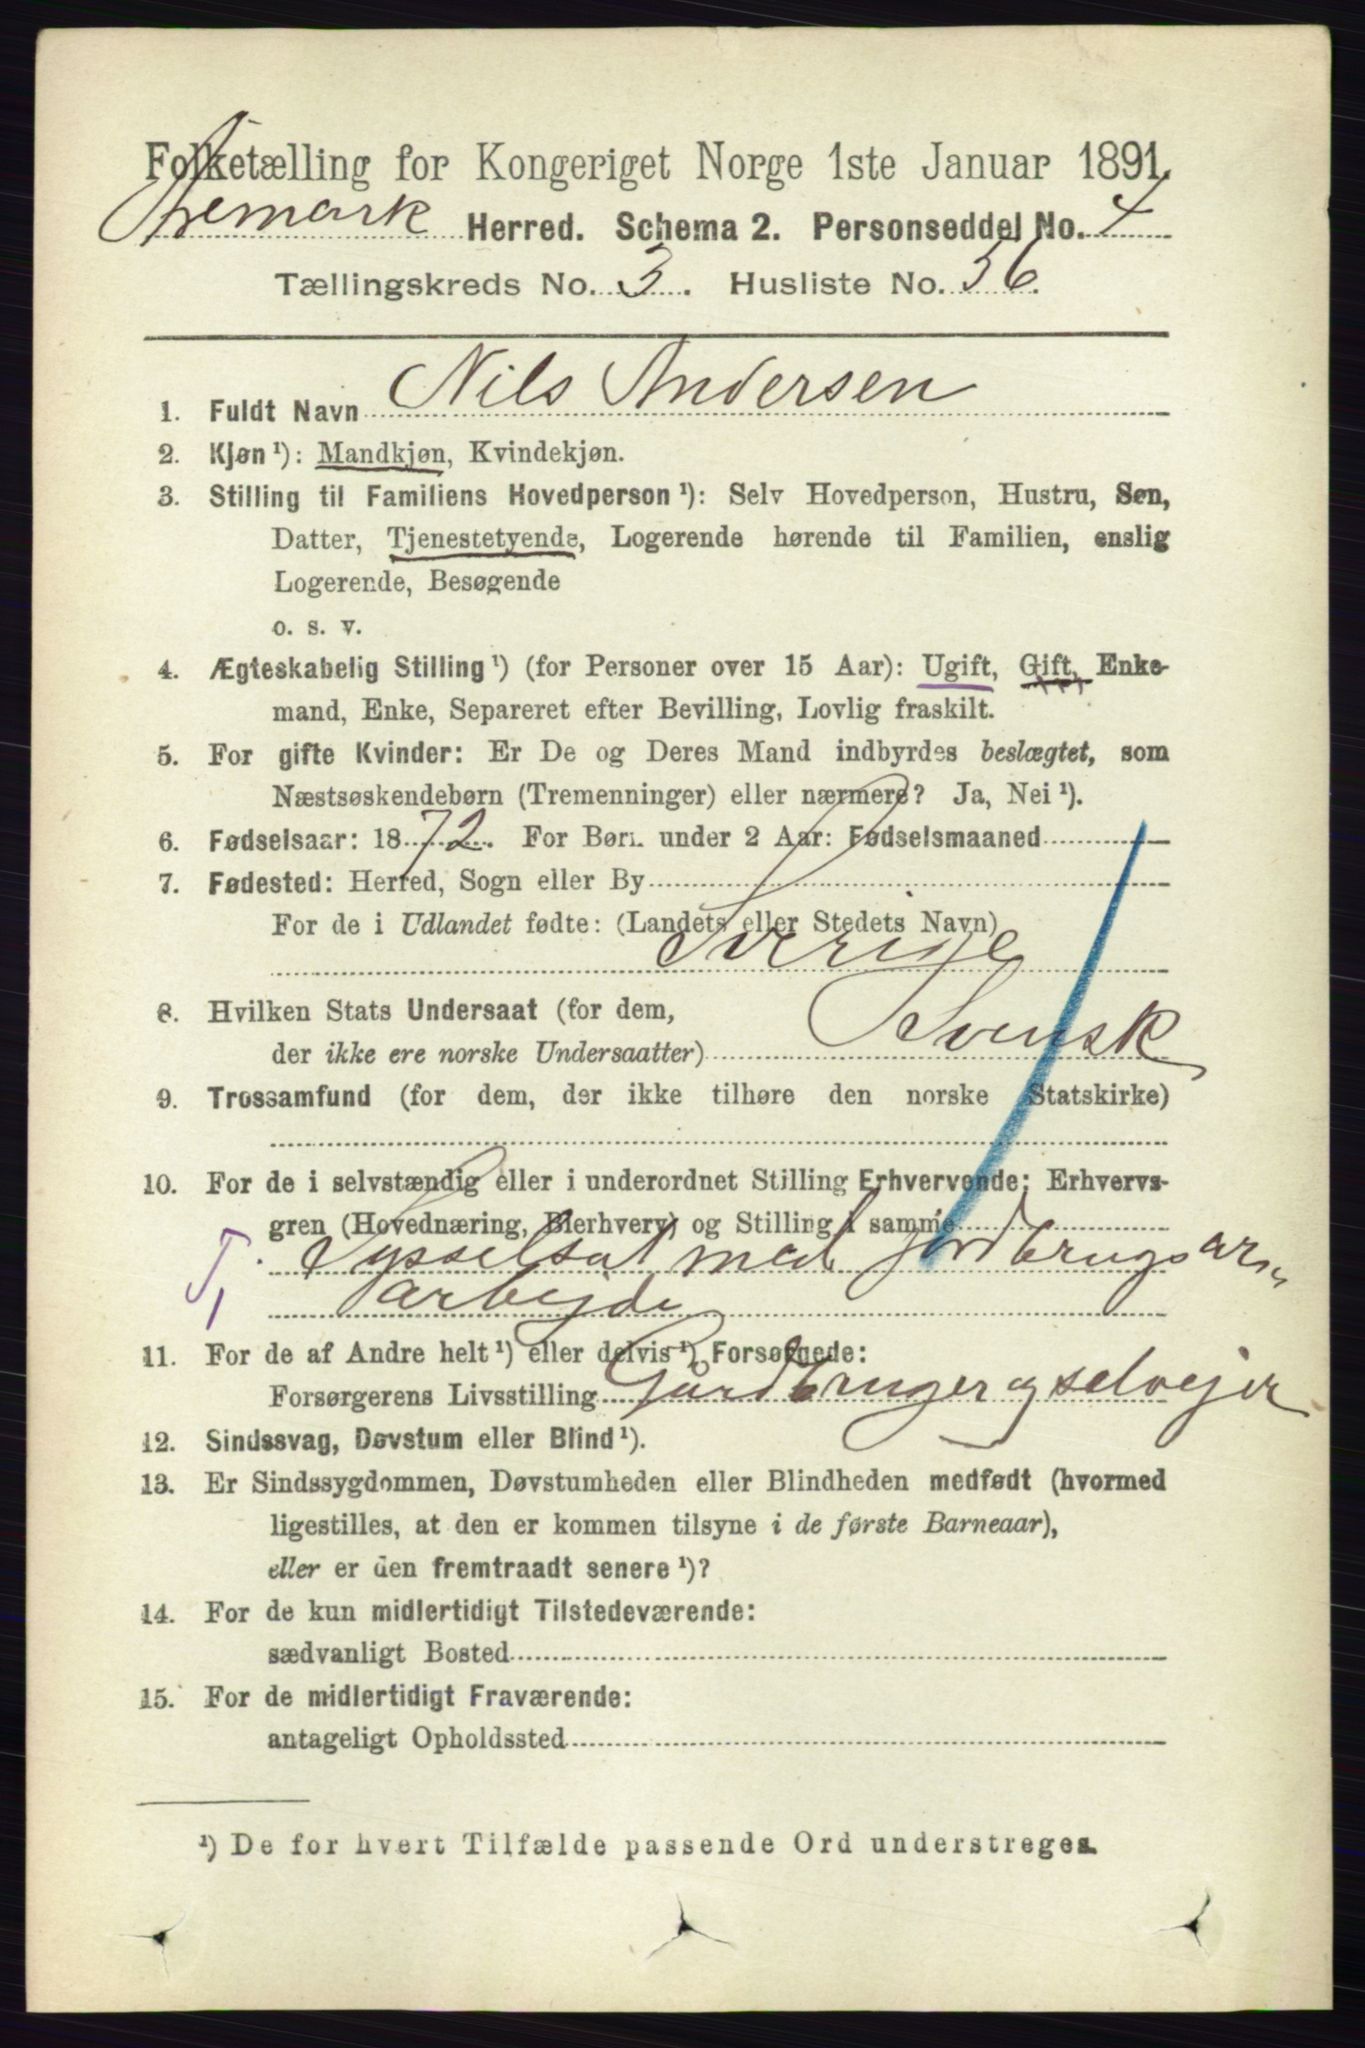 Folketælling for Kongeriget Norge 1ste Januar 1891.
Aremark Herred. Schema 2. Personseddel No. 4
Tællingskreds No. 3. Husliste No. 36.
1. Fuldt Navn Nils Andersen
2. Kjøn ¹): Mandkjøn, Kvindekjøn.
3. Stilling til Familiens Hovedperson ¹): Selv Hovedperson, Hustru, Søn,
Datter, Tjenestetyende, Logerende hørende til Familien, enslig
Logerende, Besøgende
o. s. v.
4. Ægteskabelig Stilling ¹) (for Personer over 15 Aar): Ugift, Gift, Enke-
mand, Enke, Separeret efter Bevilling, Lovlig fraskilt.
5. For gifte Kvinder: Er De og Deres Mand indbyrdes beslægtet, som
Næstsøskendebørn (Tremenninger) eller nærmere? Ja, Nei ¹).
6. Fødselsaar: 1872. For Børn under 2 Aar: Fødselsmaaned
7. Fødested: Herred, Sogn eller By
For de i Udlandet fødte: (Landets eller Stedets Navn)
Sverige
8. Hvilken Stats Undersaat (for dem,
der ikke ere norske Undersaatter) Svensk
9. Trossamfund (for dem, der ikke tilhøre den norske Statskirke)
10. For de i selvstændig eller i underordnet Stilling Erhvervende: Erhvervs-
gren (Hovednæring, Bierhverv) og Stilling i samme
Sysselsat med Jordbrugsar
arbejde
11. For de af Andre helt ¹) eller delvis ¹) Forsørgede:
Forsørgerens Livsstilling Gårdbruger og selvejer
12. Sindssvag, Døvstum eller Blind ¹).
13. Er Sindssygdommen, Døvstumheden eller Blindheden medfødt (hvormed
ligestilles, at den er kommen tilsyne i de første Barneaar),
eller er den fremtraadt senere ¹)?
14. For de kun midlertidigt Tilstedeværende:
sædvanligt Bosted
15. For de midlertidigt Fraværende:
antageligt Opholdssted
¹) De for hvert Tilfælde passende Ord understreges.